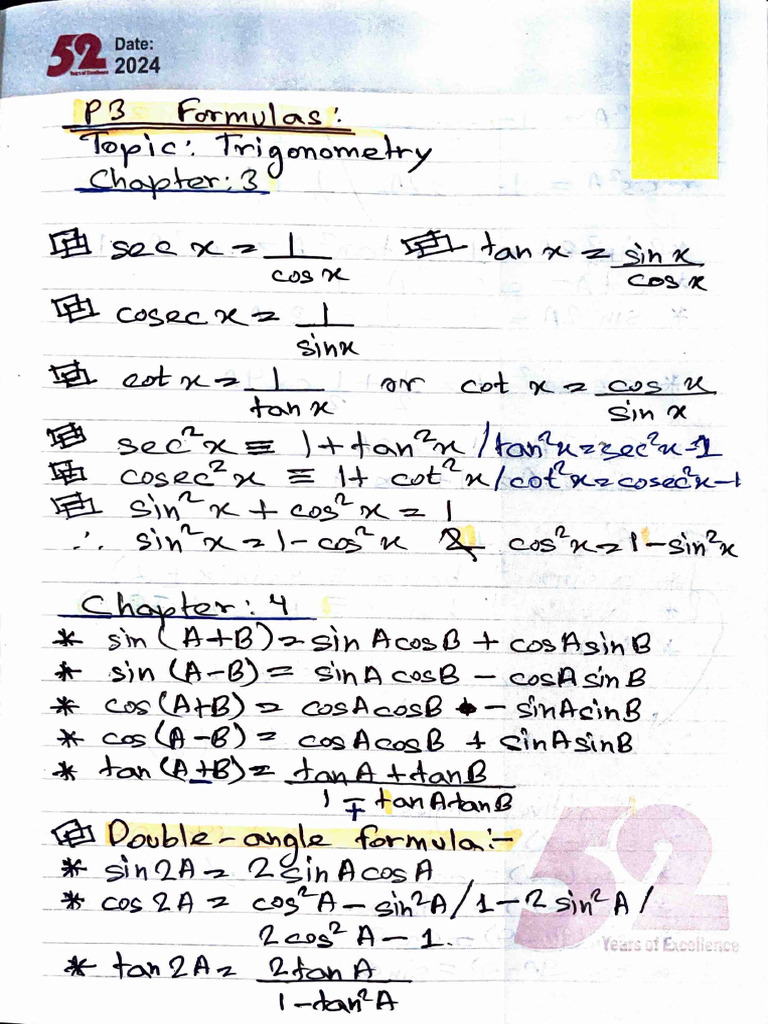 52 Date:
Years of Excellence 2024
P3 Formulas:
Topic: Trigonometry
Chapter: 3
sec x = 1/cos x    tan x = sin x/cos x
cosec x = 1/sin x
cot x = 1/tan x or cot x = cos x/sin x
sec²x ≡ 1 + tan²x / tan²x = sec²x - 1
cosec²x ≡ 1 + cot²x / cot²x = cosec²x - 1
sin²x + cos²x = 1
∴ sin²x = 1 - cos²x & cos²x = 1 - sin²x
Chapter: 4
* sin (A+B) = sin A cos B + cos A sin B
* sin (A-B) = sin A cos B - cos A sin B
* cos (A+B) = cos A cos B - sin A sin B
* cos (A-B) = cos A cos B + sin A sin B
* tan (A±B) = tan A + tan B / 1 ∓ tan A tan B
Double-angle formula:-
* sin 2A = 2 sin A cos A
* cos 2A = cos²A - sin²A / 1 - 2 sin²A /
2 cos² A - 1.
* tan 2A = 2 tan A / 1 - tan²A
52
Years of Excellence